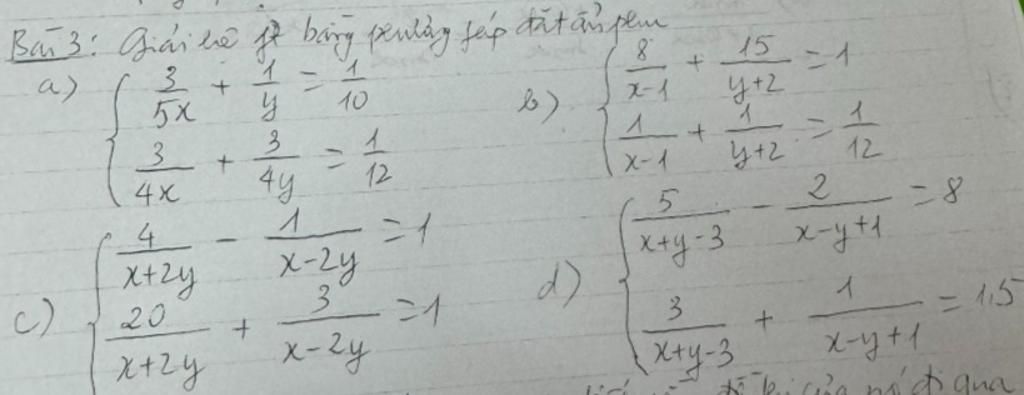 Bài 3: Giải hệ pt bằng phương pháp đặt ẩn phụ
a) { 3/5x + 1/y = 1/10
3/4x + 3/4y = 1/12
b) { 8/x-1 + 15/y+2 = 1
1/x-1 + 1/y+2 = 1/12
c) { 4/x+2y - 1/x-2y = 1
20/x+2y + 3/x-2y = 1
d) { 5/x+y-3 - 2/x-y+1 = 8
3/x+y-3 + 1/x-y+1 = 1,5
của nó đi qua